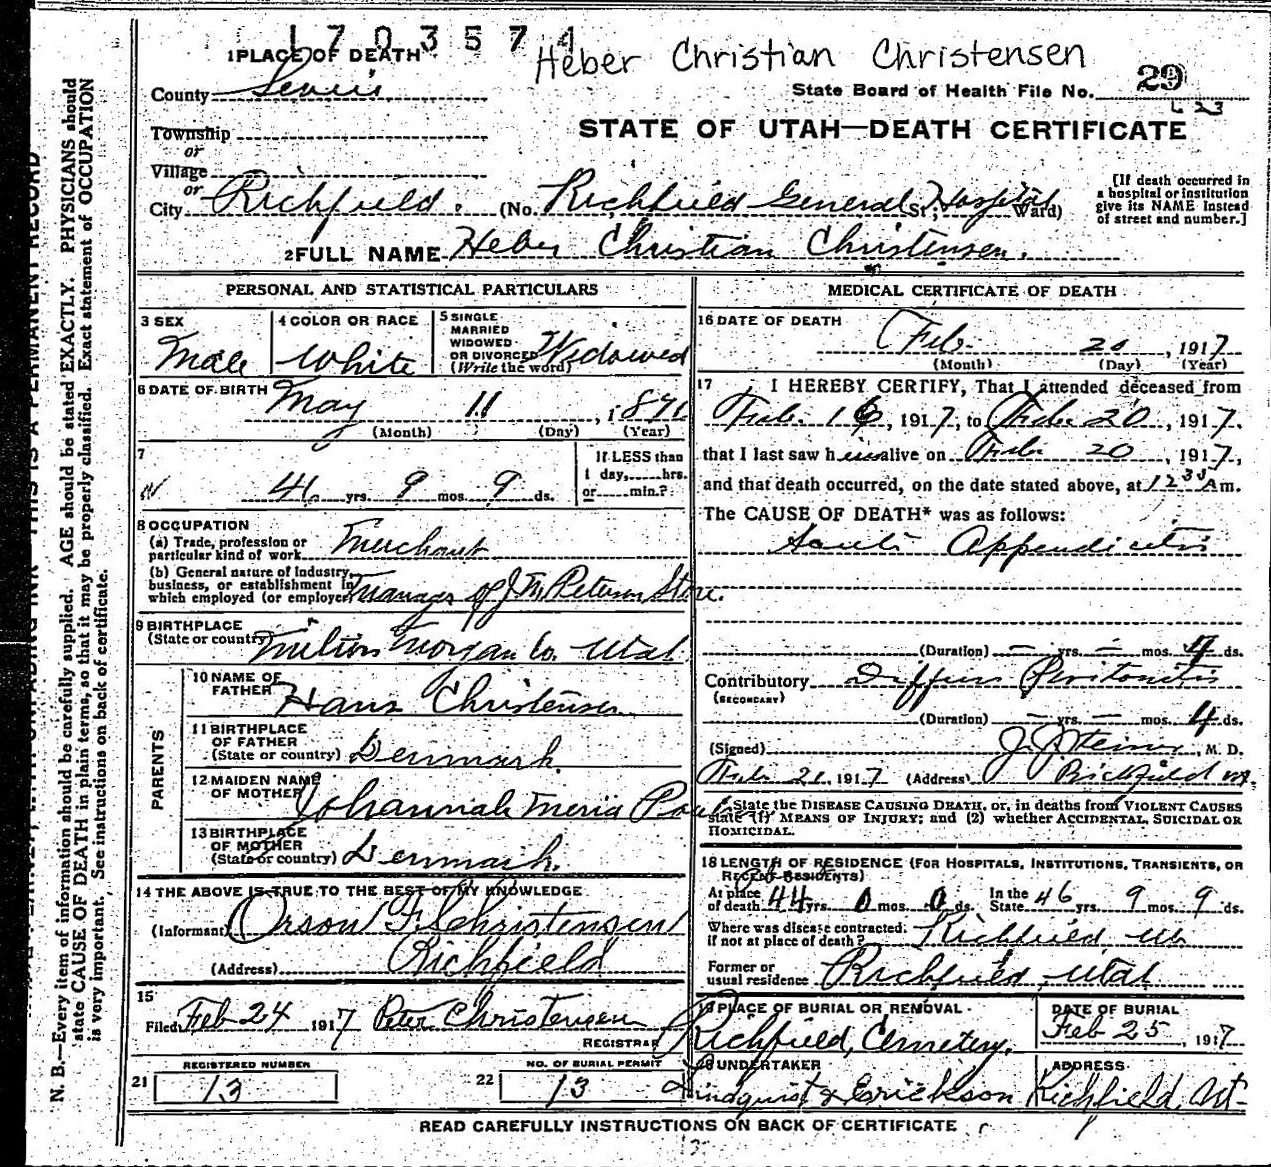 1703574
Heber Christian Christensen
1 PLACE OF DEATH
County Sevier
State Board of Health File No. 29
L 23
STATE OF UTAH—DEATH CERTIFICATE
Township
or
Village
or
City Richfield. (No. Richfield General Hospital St; Ward)
[If death occurred in a hospital or institution give its NAME instead of street and number.]
2 FULL NAME Heber Christian Christensen.
PERSONAL AND STATISTICAL PARTICULARS
3 SEX Male
4 COLOR OR RACE White
5 SINGLE MARRIED WIDOWED OR DIVORCED (Write the word) Widowed
6 DATE OF BIRTH May 11, 187
(Month) (Day) (Year)
7 yrs. 9 mos. 9 ds.
If LESS than 1 day, hrs. or min.?
8 OCCUPATION
(a) Trade, profession or particular kind of work Merchant
(b) General nature of industry, business, or establishment in which employed (or employer) Manager of J M Peterson Store.
9 BIRTHPLACE (State or country) Milton Morgan Co. Utah
PARENTS
10 NAME OF FATHER Hans Christensen
11 BIRTHPLACE OF FATHER (State or country) Denmark.
12 MAIDEN NAME OF MOTHER Johannah Meria
13 BIRTHPLACE OF MOTHER (State or country) Denmark.
14 THE ABOVE IS TRUE TO THE BEST OF MY KNOWLEDGE
(Informant) Orson F. Christensen
(Address) Richfield
15 Filed Feb 24 1917 Peter Christensen
REGISTRAR
21 REGISTERED NUMBER 13
22 NO. OF BURIAL PERMIT 13
MEDICAL CERTIFICATE OF DEATH
16 DATE OF DEATH
Feb. 20, 1917
(Month) (Day) (Year)
17 I HEREBY CERTIFY, That I attended deceased from
Feb. 16, 1917, to Feb. 20, 1917.
that I last saw him alive on Feb 20, 1917,
and that death occurred, on the date stated above, at 12 35 Am.
The CAUSE OF DEATH* was as follows:
Acute Appendicitis
(Duration) — yrs. — mos. 4 ds.
Contributory Diffuse Peritonitis
(SECONDARY)
(Duration) — yrs. — mos. 4 ds.
(Signed) J. J. Steiner, M. D.
Feb 21, 1917 (Address) Richfield ut.
State the DISEASE CAUSING DEATH, or, in deaths from VIOLENT CAUSES
state (1) MEANS OF INJURY; and (2) whether ACCIDENTAL, SUICIDAL OR
HOMICIDAL.
18 LENGTH OF RESIDENCE (FOR HOSPITALS, INSTITUTIONS, TRANSIENTS, OR
RECENT RESIDENTS)
At place of death 44 yrs. 0 mos. 0 ds. In the State 46 yrs. 9 mos. 9 ds.
Where was disease contracted, if not at place of death? Richfield, Ut
Former or usual residence Richfield, Utah
19 PLACE OF BURIAL OR REMOVAL
Richfield, Cemetery.
DATE OF BURIAL
Feb 25, 1917
20 UNDERTAKER
Lindquist & Erickson
ADDRESS
Richfield, Ut-
READ CAREFULLY INSTRUCTIONS ON BACK OF CERTIFICATE
THIS IS A PERMANENT RECORD
N. B.—Every item of information should be carefully supplied. AGE should be stated EXACTLY. PHYSICIANS should
state CAUSE OF DEATH in plain terms, so that it may be properly classified. Exact statement of OCCUPATION
is very important. See instructions on back of certificate.